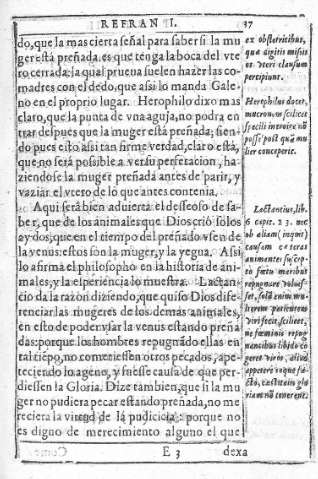 REFRAN II. 37
do, que la mas cierta señal para saber si la mu
ger està preñada, es que tenga la boca del vte
ro cerrada: la qual prueua suelen hazer las co-
madres con el dedo, que assi lo manda Gale
no en el proprio lugar. Herophilo dixo mas
claro, que la punta de vna aguja, no podra en
trar despues que la muger està preñada; sien-
do pues esto assi tan firme verdad, claro està,
que no serà possible a ver su perferacion, ha-
ziendose la muger preñada antes de parir, y
vaziar el vtero de lo que antes contenia.
Aqui serà bien aduierta el desseoso de sa-
ber, que de los animales que Dios criò solos
ay dos, que en el tiempo del preñado vsen de
la venus: estos son la muger, y la yegua. Assi
lo afirma el philosopho en la historia de ani-
males, y la experiencia lo muestra. Lactan-
cio da la razon diziendo, que quiso Dios dife-
renciar las mugeres de los demas animales,
en esto de poder vsar la venus estando preña
das: porque los hombres repugnado ellas en
tal tiẽpo, no cometiessen otros pecados, ape-
teciendo lo ageno, y fuesse causa de que per-
diessen la Gloria. Dize tambien, que si la mu
ger no pudiera pecar estando preñada, no me
reciera la virtud de la pudicicia: porque no
es digno de merecimiento alguno el que
E 3 dexa
ex obstetricibus,
quæ digitis missis
os vteri clausum
percipiunt.
Herophilus docet,
mucronem se dicit
specilli introire nõ
posse post quã mu
lier conceperit.
Lactantius, lib.
6. capit. 23. me
ob aliam (inquit)
causam cæteras
animantes suscep
to fœtu maribus
repugnare voluis-
set, solã enim mu-
lierem patientem
viri fecit, scilicet,
ne fœminis repug
nantibus libido co
geret viros, aliud
appetere eoque fa-
cto, castitatis glo
riam nõ tenerent.